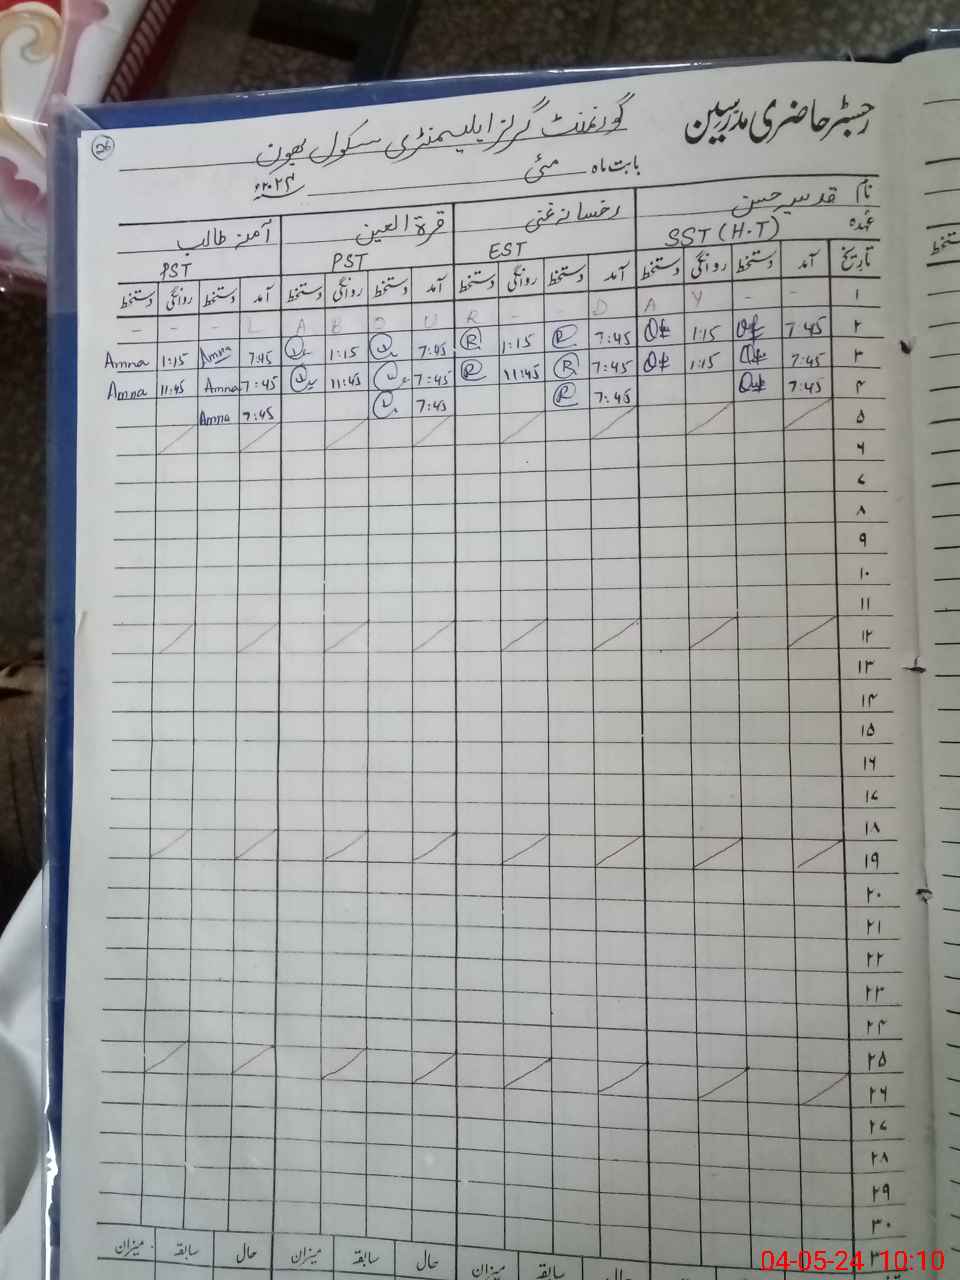 رجسٹر حاضری مدرسین
گورنمنٹ گرلز ایلیمنٹری سکول بھون
26
بابت ماہ مئی ۲۰۲۴ء
نام قدسیہ حسن رخسانہ غنی قرۃ العین آمنہ طالب
عہدہ SST (H.T) EST PST PST
تاریخ آمد دستخط روانگی دستخط آمد دستخط روانگی دستخط آمد دستخط روانگی دستخط آمد دستخط روانگی دستخط
۱ - - - L A B O U R - - D A Y - -
۲ 7:45 1:15 7:45 R 1:15 R 7:45 1:15 7:45 Amna 1:15 Amna
۳ 7:45 1:15 7:45 R 11:45 R 7:45 11:45 7:45 Amna 11:45 Amna
۴ 7:45 7:45 R 7:45 7:45 Amna
۵
۶
۷
۸
۹
۱۰
۱۱
۱۲
۱۳
۱۴
۱۵
۱۶
۱۷
۱۸
۱۹
۲۰
۲۱
۲۲
۲۳
۲۴
۲۵
۲۶
۲۷
۲۸
۲۹
۳۰
حال سابقہ میزان حال سابقہ میزان حال سابقہ میزان
04-05-24 10:10